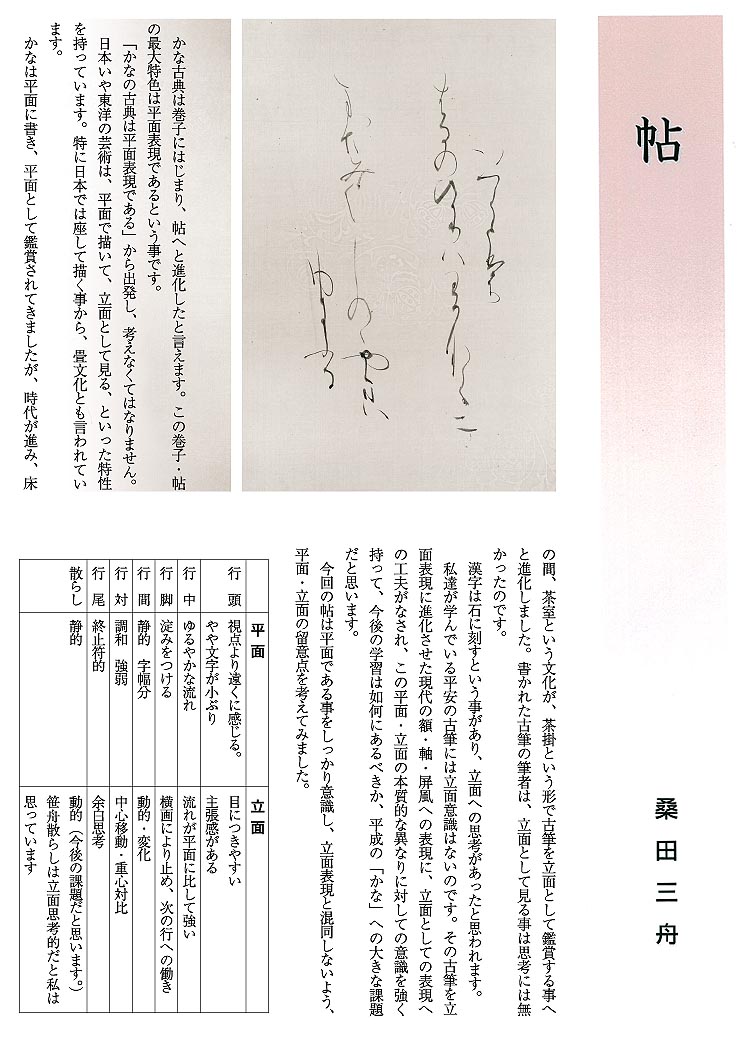 帖
桑田三舟
かな古典は巻子にはじまり、帖へと進化したと言えます。この巻子・帖
の最大特色は平面表現であるという事です。
「かなの古典は平面表現である」から出発し、考えなくてはなりません。
日本いや東洋の芸術は、平面で描いて、立面として見る、といった特性
を持っています。特に日本では座して描く事から、畳文化とも言われてい
ます。
かなは平面に書き、平面として鑑賞されてきましたが、時代が進み、床
の間、茶室という文化が、茶掛という形で古筆を立面として鑑賞する事へ
と進化しました。書かれた古筆の筆者は、立面として見る事は思考には無
かったのです。
漢字は石に刻すという事があり、立面への思考があったと思われます。
私達が学んでいる平安の古筆には立面意識はないのです。その古筆を立
面表現に進化させた現代の額・軸・屏風への表現に、立面としての表現へ
の工夫がなされ、この平面・立面の本質的な異なりに対しての意識を強く
持って、今後の学習は如何にあるべきか、平成の「かな」への大きな課題
だと思います。
今回の帖は平面である事をしっかり意識し、立面表現と混同しないよう、
平面・立面の留意点を考えてみました。
平面
立面
行頭
視点より遠くに感じる。
やや文字が小ぶり
目につきやすい
主張感がある
行中
ゆるやかな流れ
流れが平面に比して強い
行脚
淀みをつける
横画により止め、次の行への働き
行間
静的 字幅分
動的・変化
行対
調和 強弱
中心移動・重心対比
行尾
終止符的
余白思考
散らし
静的
動的（今後の課題だと思います。）
笹舟散らしは立面思考的だと私は
思っています